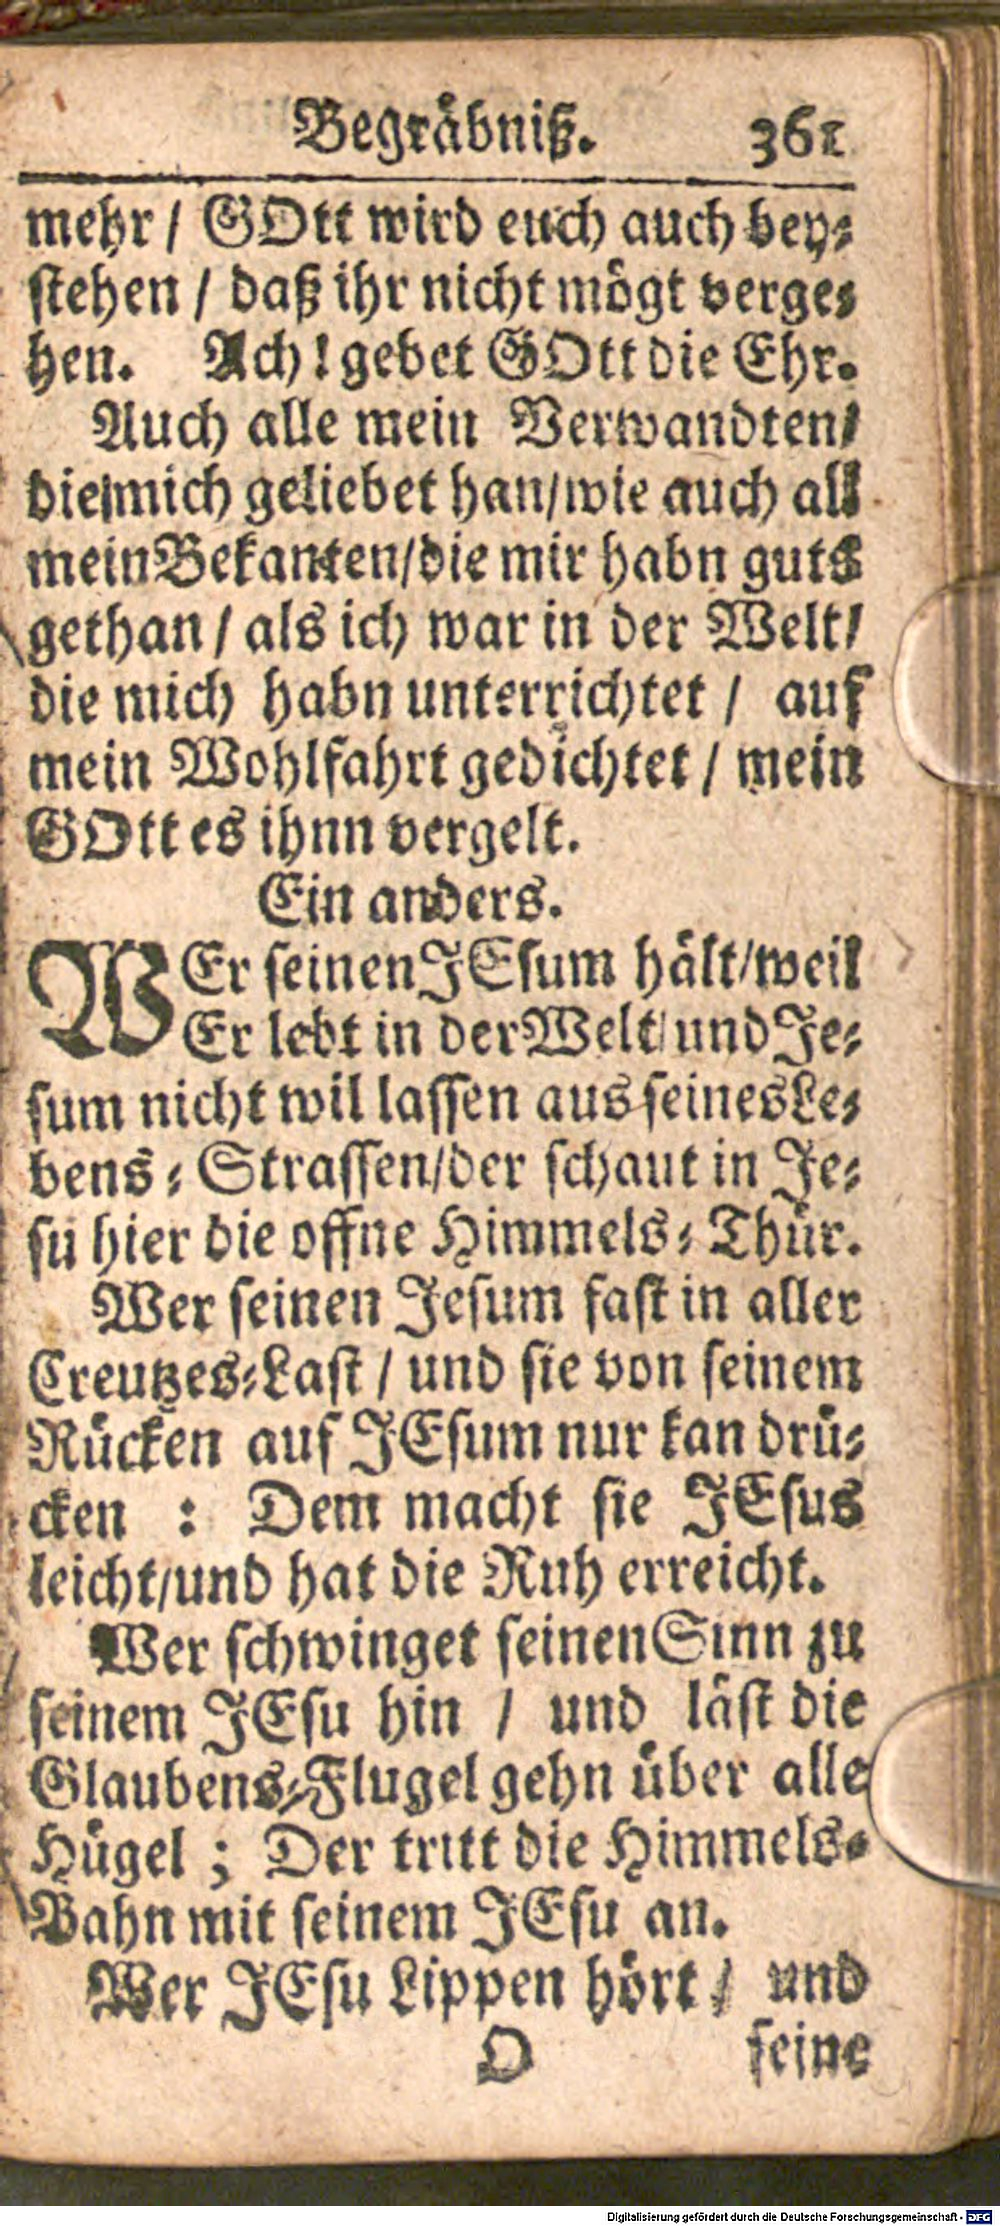 Begräbniß. 361
mehr / GOtt wird euch auch bey-
stehen / daß ihr nicht mögt verge-
hen. Ach! gebet GOtt die Ehr.
Auch alle mein Verwandten/
die mich geliebet han/ wie auch all
mein Bekanten/ die mir habn guts
gethan / als ich war in der Welt/
die mich habn unterrichtet / auf
mein Wohlfahrt gedichtet / mein
GOtt es ihnn vergelt.
Ein anders.
WEr seinen JEsum hält/ weil
Er lebt in der Welt/ und Je-
sum nicht wil lassen aus seines Le-
bens-Strassen/ der schaut in Je-
su hier die offne Himmels-Thür.
Wer seinen Jesum fast in aller
Creutzes-Last / und sie von seinem
Rücken auf JEsum nur kan drü-
cken : Dem macht sie JEsus
leicht/ und hat die Ruh erreicht.
Wer schwinget seinen Sinn zu
seinem JEsu hin / und läst die
Glaubens-Flugel gehn über alle
Hügel ; Der tritt die Himmels-
Bahn mit seinem JEsu an.
Wer JEsu Lippen hört / und
O seine
Digitalisierung gefördert durch die Deutsche Forschungsgemeinschaft - DFG